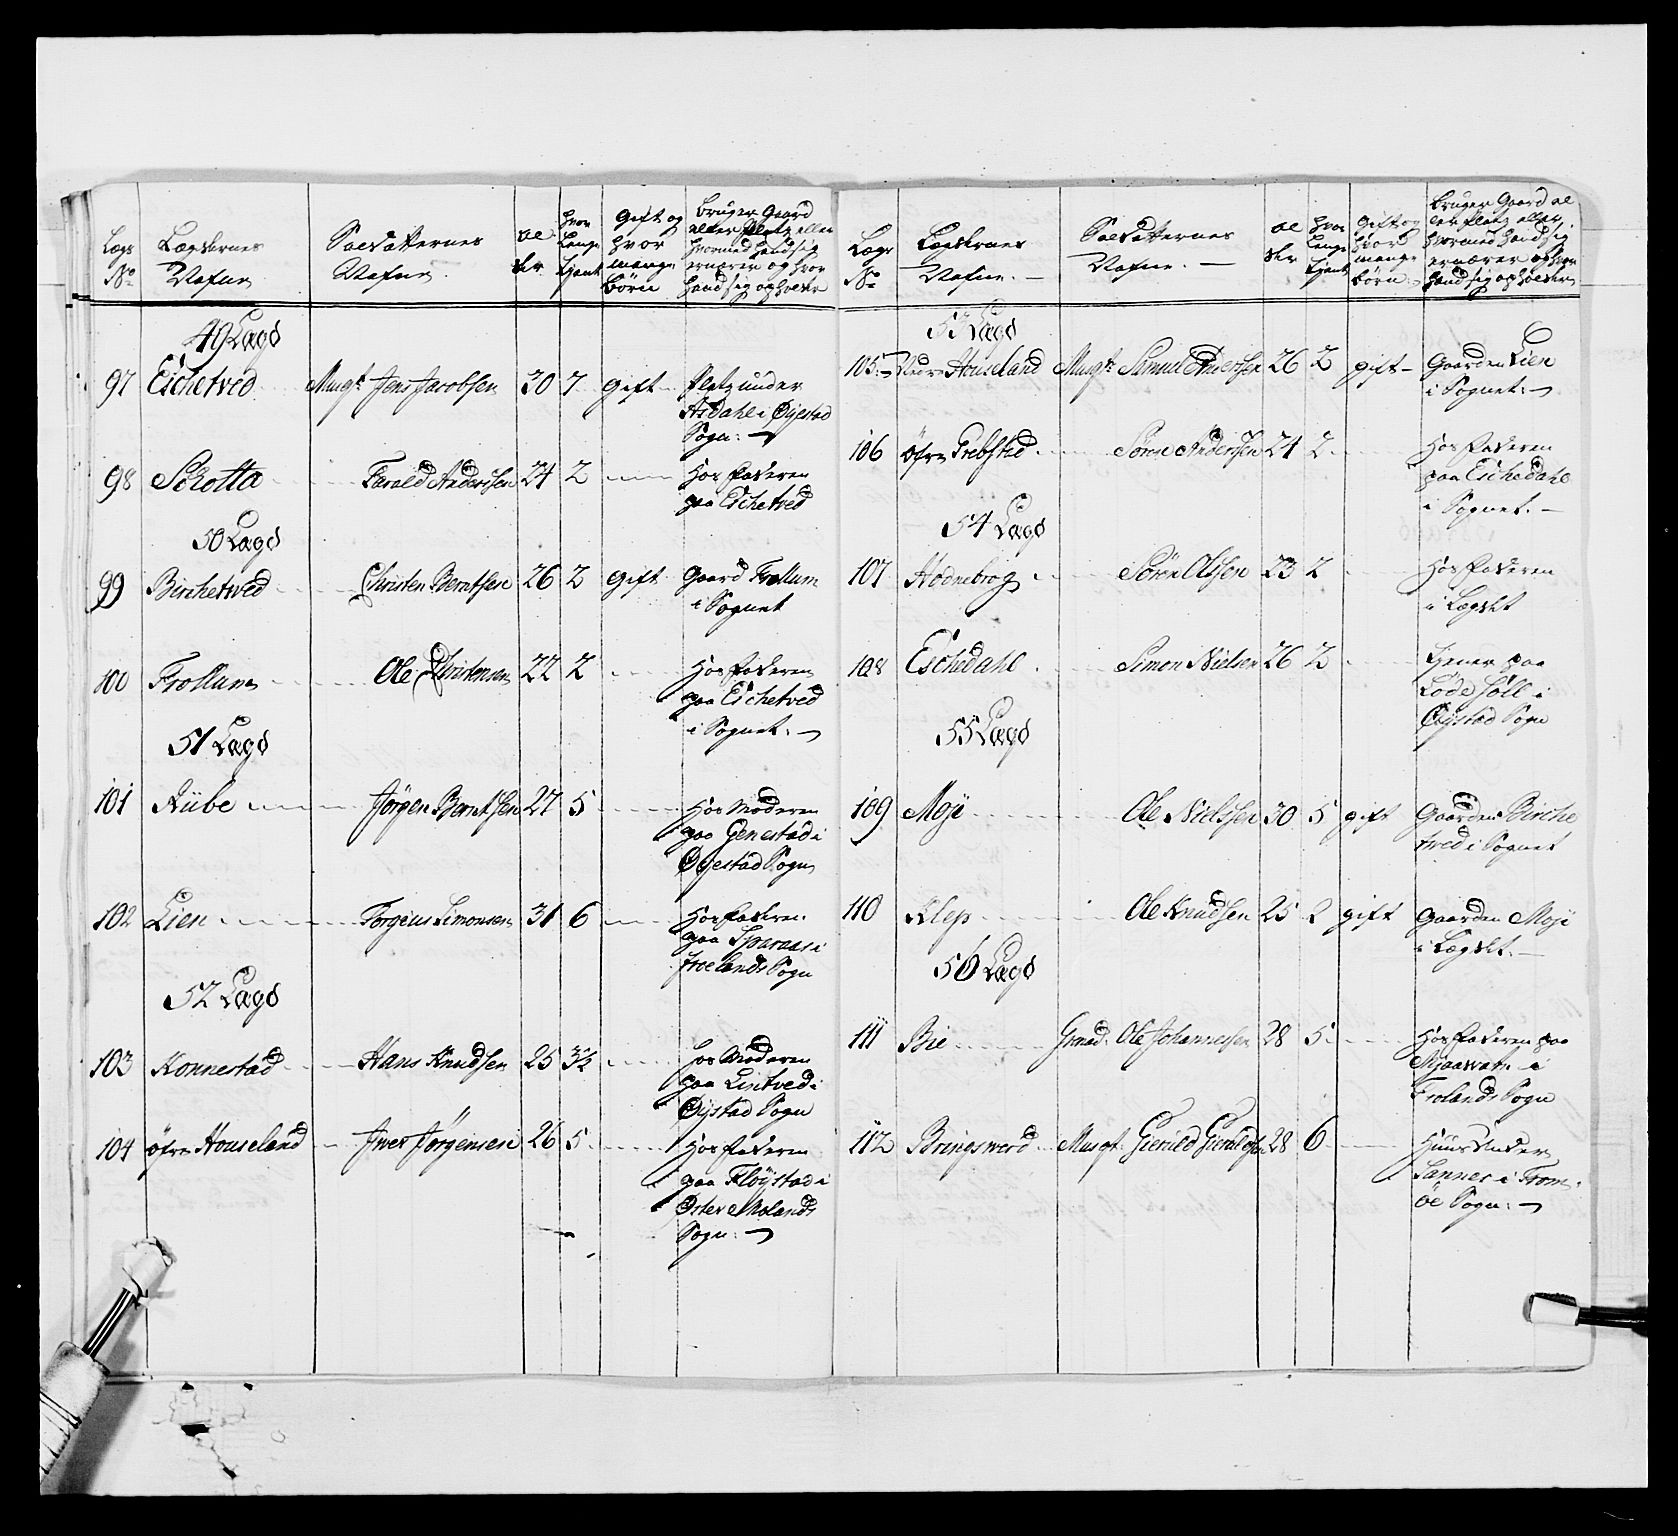 Lægs No
Lægdernes Nafne
Soldatternes Nafne
Al der
hvor Længe tjent
Gift og hvor mange børn
bruger Gaard eller Platz eller hvormed hand sig ernærer og hvor hand sig opholder
49 Lægd
97 Eschetved Musqt Jens Jacobsen 30 7 gift Platz under
Asdahl i Øyestad
Sogn.
98 Schotta Tarald Anderssen 24 2 Hos faderen
paa Eschetved
50 Lægd
99 Birchetved Christen Berntsen 26 2 Gift Gaard Frollum
i Sognet
100 Frollum Ole Christensen 22 2 Hos faderen
paa Eschetved
i Sognet.
51 Lægd
101 Rübe Jørgen Berntsen 27 5 Hos Moderen
paa Genestad i
Øyestad Sogn
102 Lien Torgius Simonsen 31 6 Hos faderen
paa Sparaas i
froelands Sogn
52 Lægd
103 Konnestad Hans Knudsen 25 3½ hos Moderen
paa Lintved i
Øystad Sogn
104 øfre Houseland Iver Jørgensen 26 5 Hos faderen
paa Fløystad i
Øster Molands
Sogn.
Lægs No
Lægdernes Nafne.
Soldatternes Nafne.
Al der
hvor Længe tjent
gift og hvor mange børn
bruger Gaard el ler Platz eller hvormed hand sig ernærer og hvor hand sig opholder
53 Lægd
105 Nedre Houseland Musqt Samuel Andersen 26 2 gift Gaarden Lien
i Sognet.
106 Øfre Trebstad Søren Andersen 24 2 Hos faderen
paa Eschedahl
i Sognet.
54 Lægd
107 Hodnebrog Søren Olssen 23 2 Hos faderen
i Lægdet
108 Eschedahl Simon Nielsen 26 2 tjener paa
Løde Søll i
Øystad Sogn
55 Lægd
109 Møje Ole Nielssen 30 5 gift Gaarden Birche
tved i Sognet
110 Klep Ole Knudsen 25 2 gift Gaarden Møje
i Lægdet.
56 Lægd
111 Bie Grenad. Ole Johannessen 28 5 Hos faderen paa
Mjaavatn i
Frolands Sogn
112 Bringsverd Musqt. Gieruld Gieruldsen 28 6 Huus under
Sannes i Trom
öe Sogn.